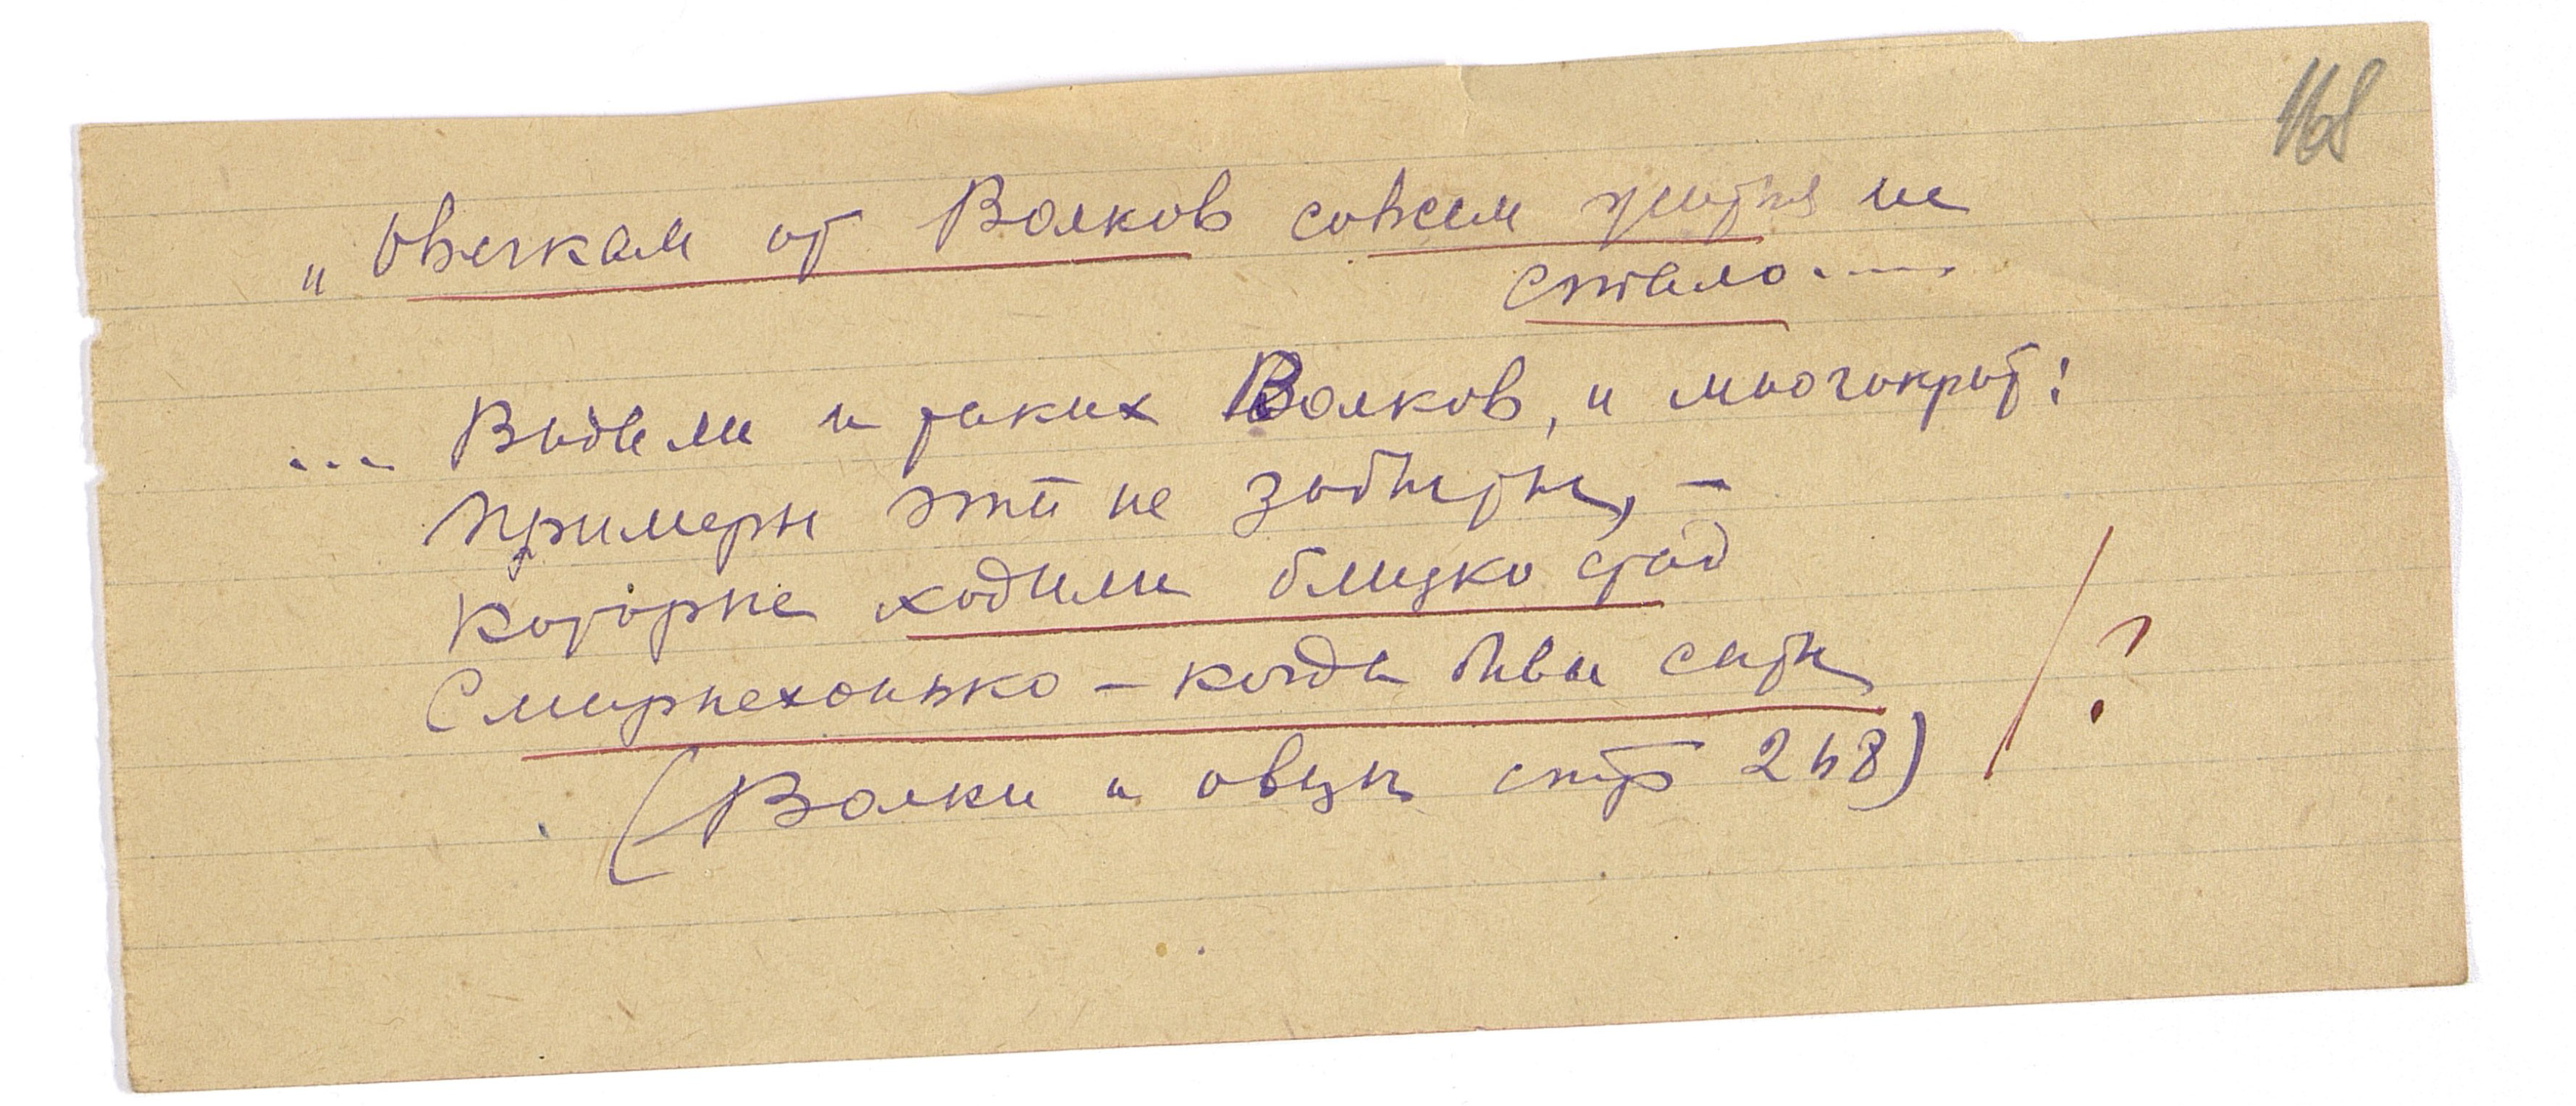 168
„Овечкам от Волков совсем житья не
стало....
... Видели и таких Волков, и многократ:
примеры эти не забыты, –
которые ходили близко стад
Смирнехонько – когда бывали сыты
(Волки и овцы стр 248)
/?